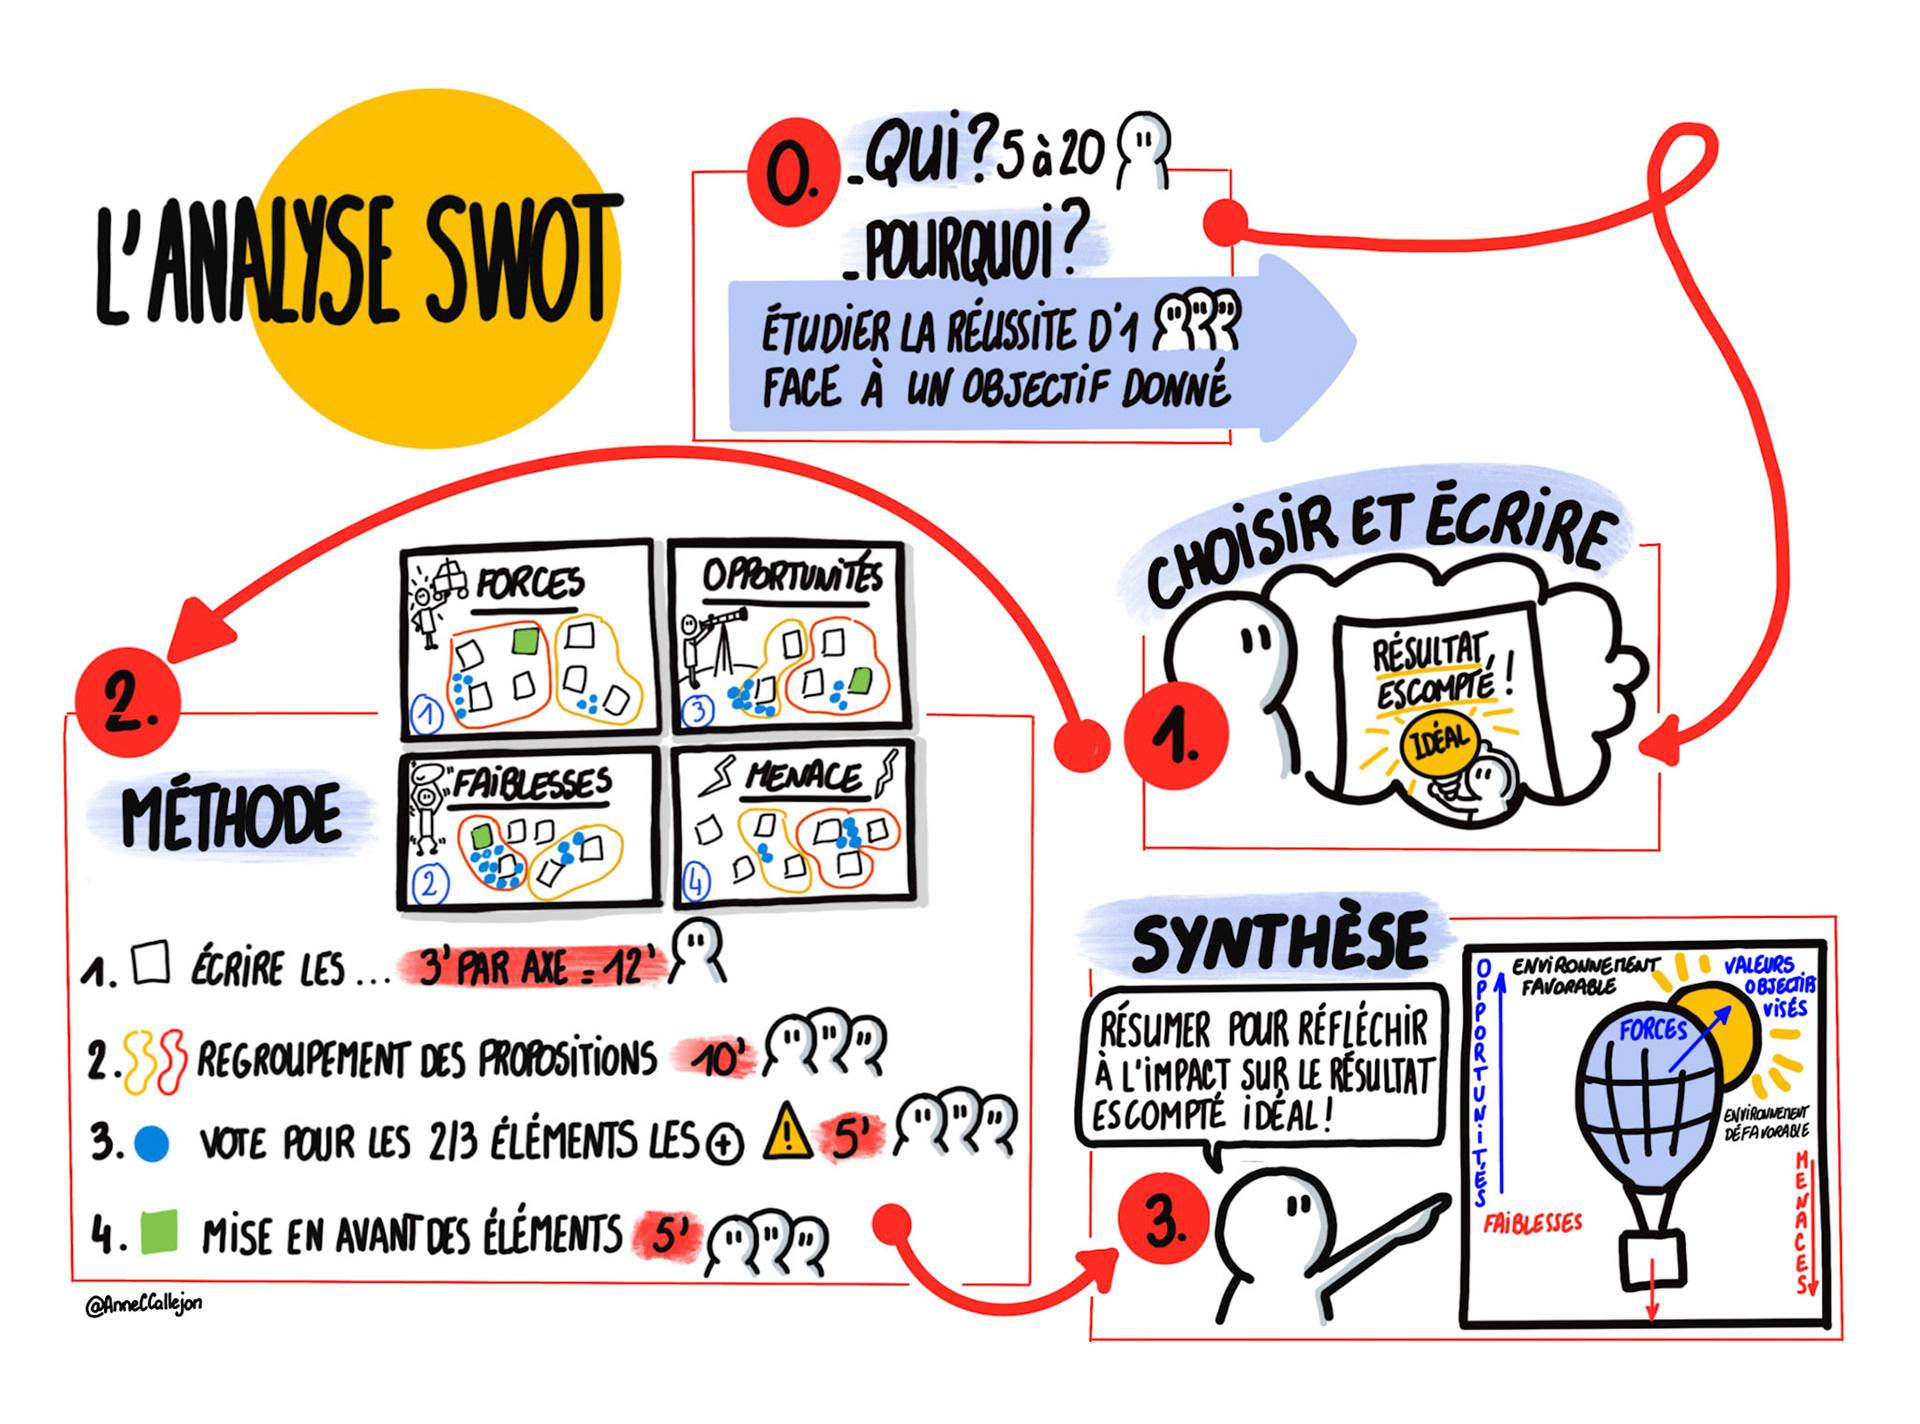 L'ANALYSE SWOT
0.
- QUI? 5 à 20
- POURQUOI?
ÉTUDIER LA RÉUSSITE D'1
FACE À UN OBJECTIF DONNÉ
CHOISIR ET ÉCRIRE
1.
RÉSULTAT
ESCOMPTÉ !
IDÉAL
2.
MÉTHODE
FORCES
1
OPPORTUNITÉS
3
FAIBLESSES
2
MENACE
4
1. ÉCRIRE LES ... 3' PAR AXE = 12'
2. REGROUPEMENT DES PROPOSITIONS 10'
3. VOTE POUR LES 2/3 ÉLÉMENTS LES + ! 5'
4. MISE EN AVANT DES ÉLÉMENTS 5'
@AnneCCallejon
SYNTHÈSE
3.
RÉSUMER POUR RÉFLÉCHIR
À L'IMPACT SUR LE RÉSULTAT
ESCOMPTÉ IDÉAL !
OPPORTUNITÉS
ENVIRONNEMENT
FAVORABLE
VALEURS
OBJECTIFS
VISÉS
FORCES
ENVIRONNEMENT
DÉFAVORABLE
MENACES
FAIBLESSES